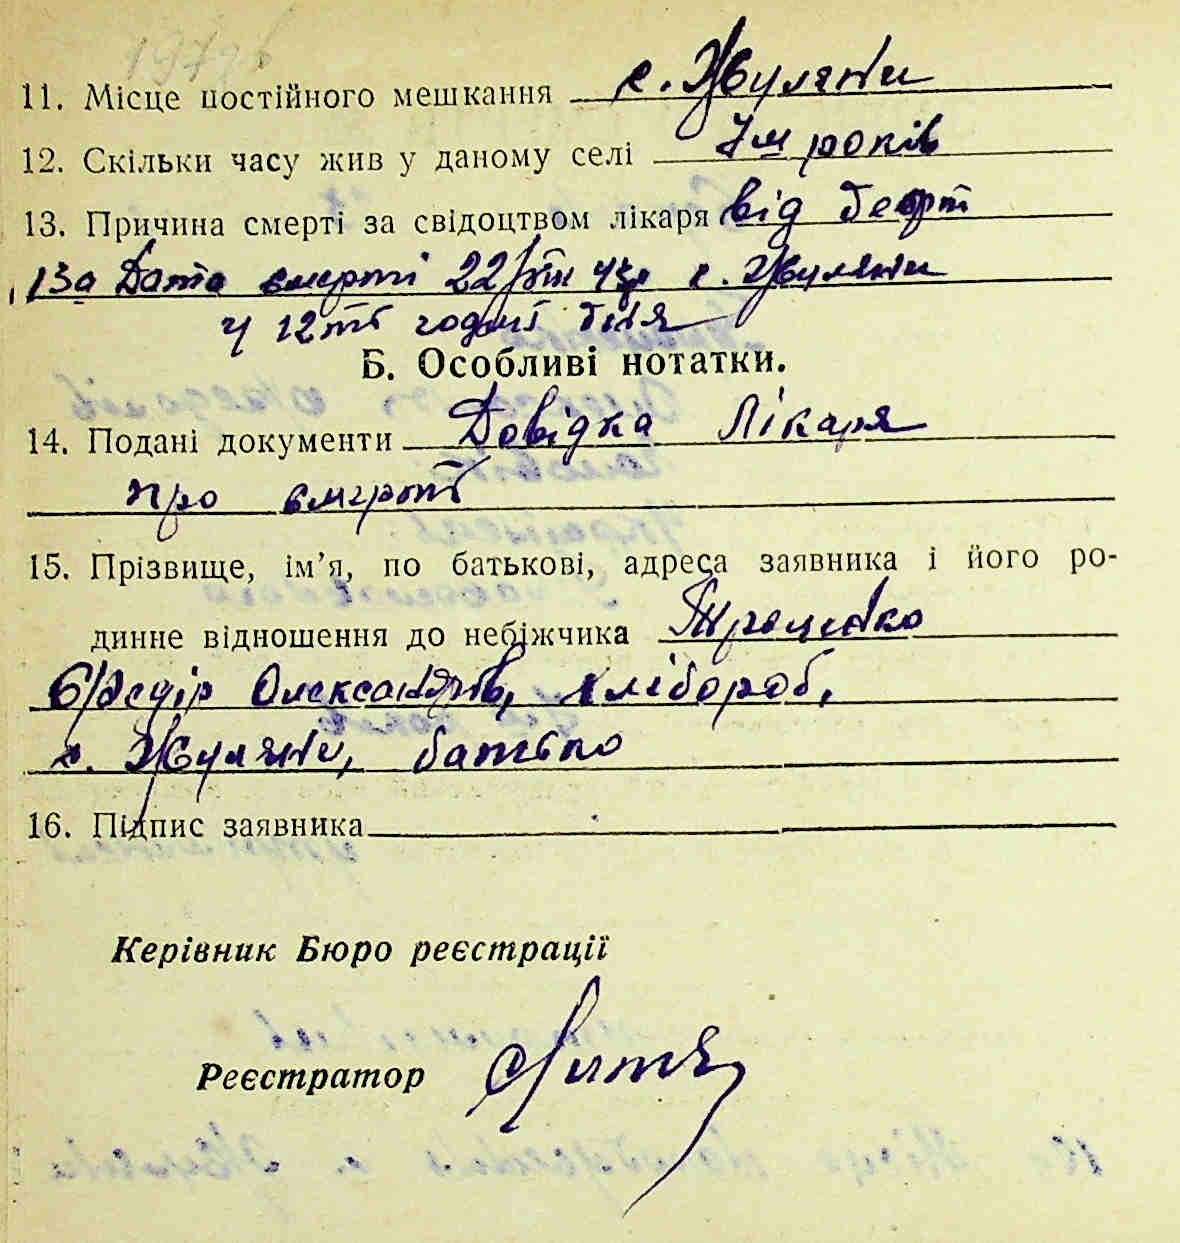 11. Місце постійного мешкання с. Жуляни
12. Скільки часу жив у даному селі 7м років
13. Причина смерті за свідоцтвом лікаря від
13а Дата смерті 22/ 43р с. Жуляни
у 12ть годині дня
Б. Особливі нотатки.
14. Подані документи Довідка Лікаря
про смерть
15. Прізвище, ім’я, по батькові, адреса заявника і його ро-
динне відношення до небіжчика Троценко
Олександрів, хлібороб,
с. Жуляни, батько
16. Підпис заявника
Керівник Бюро реєстрації
Реєстратор